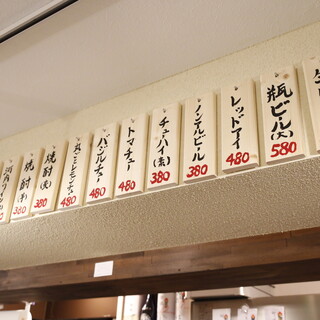 瓶ビール(大)
580
レッドアイ
480
ノンアルビール
380
チューハイ(素)
380
トマチュー
480
バジルチュー
480
丸ごとレモンチュー
480
焼酎(麦)
380
焼酎(芋)
380